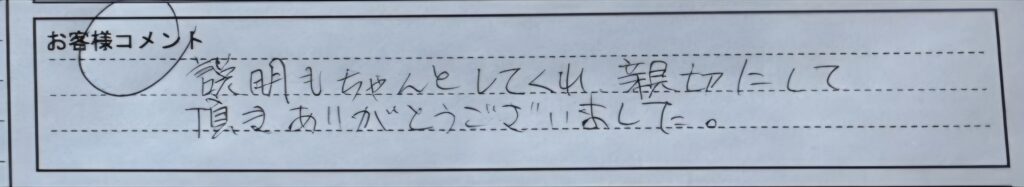 お客様コメント
説明もちゃんとしてくれ 親切にして
頂きありがとうございました。